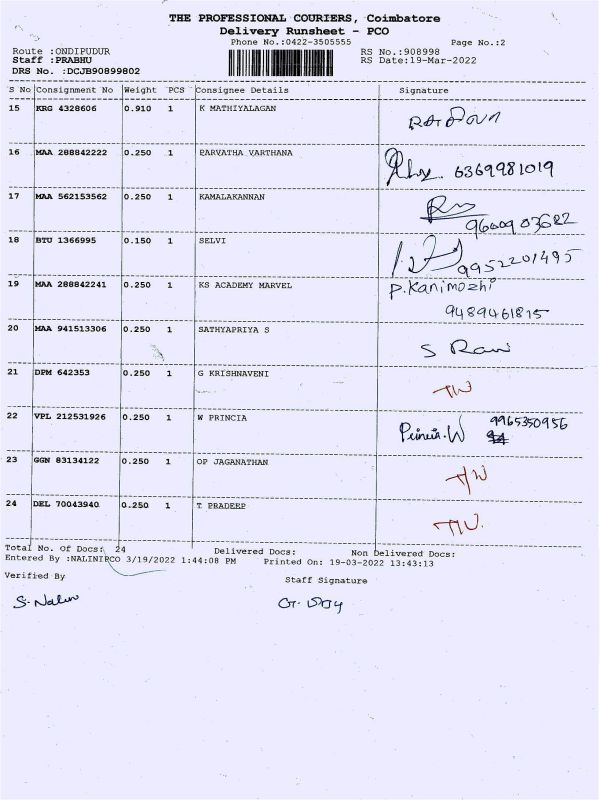 THE PROFESSIONAL COURIERS, Coimbatore
Delivery Runsheet - PCO
Phone No.:0422-3505555 Page No.:2
Route :ONDIPUDUR RS No.:908998
Staff :PRABHU RS Date:19-Mar-2022
DRS No. :DCJB90899802
S No Consignment No Weight PCS Consignee Details Signature
15 KRG 4328606 0.910 1 K MATHIYALAGAN
16 MAA 288842222 0.250 1 PARVATHA VARTHANA
6369981019
17 MAA 562153562 0.250 1 KAMALAKANNAN
9600903682
18 BTU 1366995 0.150 1 SELVI
9952201495
19 MAA 288842241 0.250 1 KS ACADEMY MARVEL P.Kanimozhi
9489461815
20 MAA 941513306 0.250 1 SATHYAPRIYA S
S Ravi
21 DPM 642353 0.250 1 G KRISHNAVENI
22 VPL 212531926 0.250 1 W PRINCIA
Princia.W 9965350956
23 GGN 83134122 0.250 1 OP JAGANATHAN
24 DEL 70043940 0.250 1 T PRADEEP
Total No. Of Docs: 24 Delivered Docs: Non Delivered Docs:
Entered By :NALINIPCO 3/19/2022 1:44:08 PM Printed On: 19-03-2022 13:43:13
Verified By Staff Signature
S. Nalini